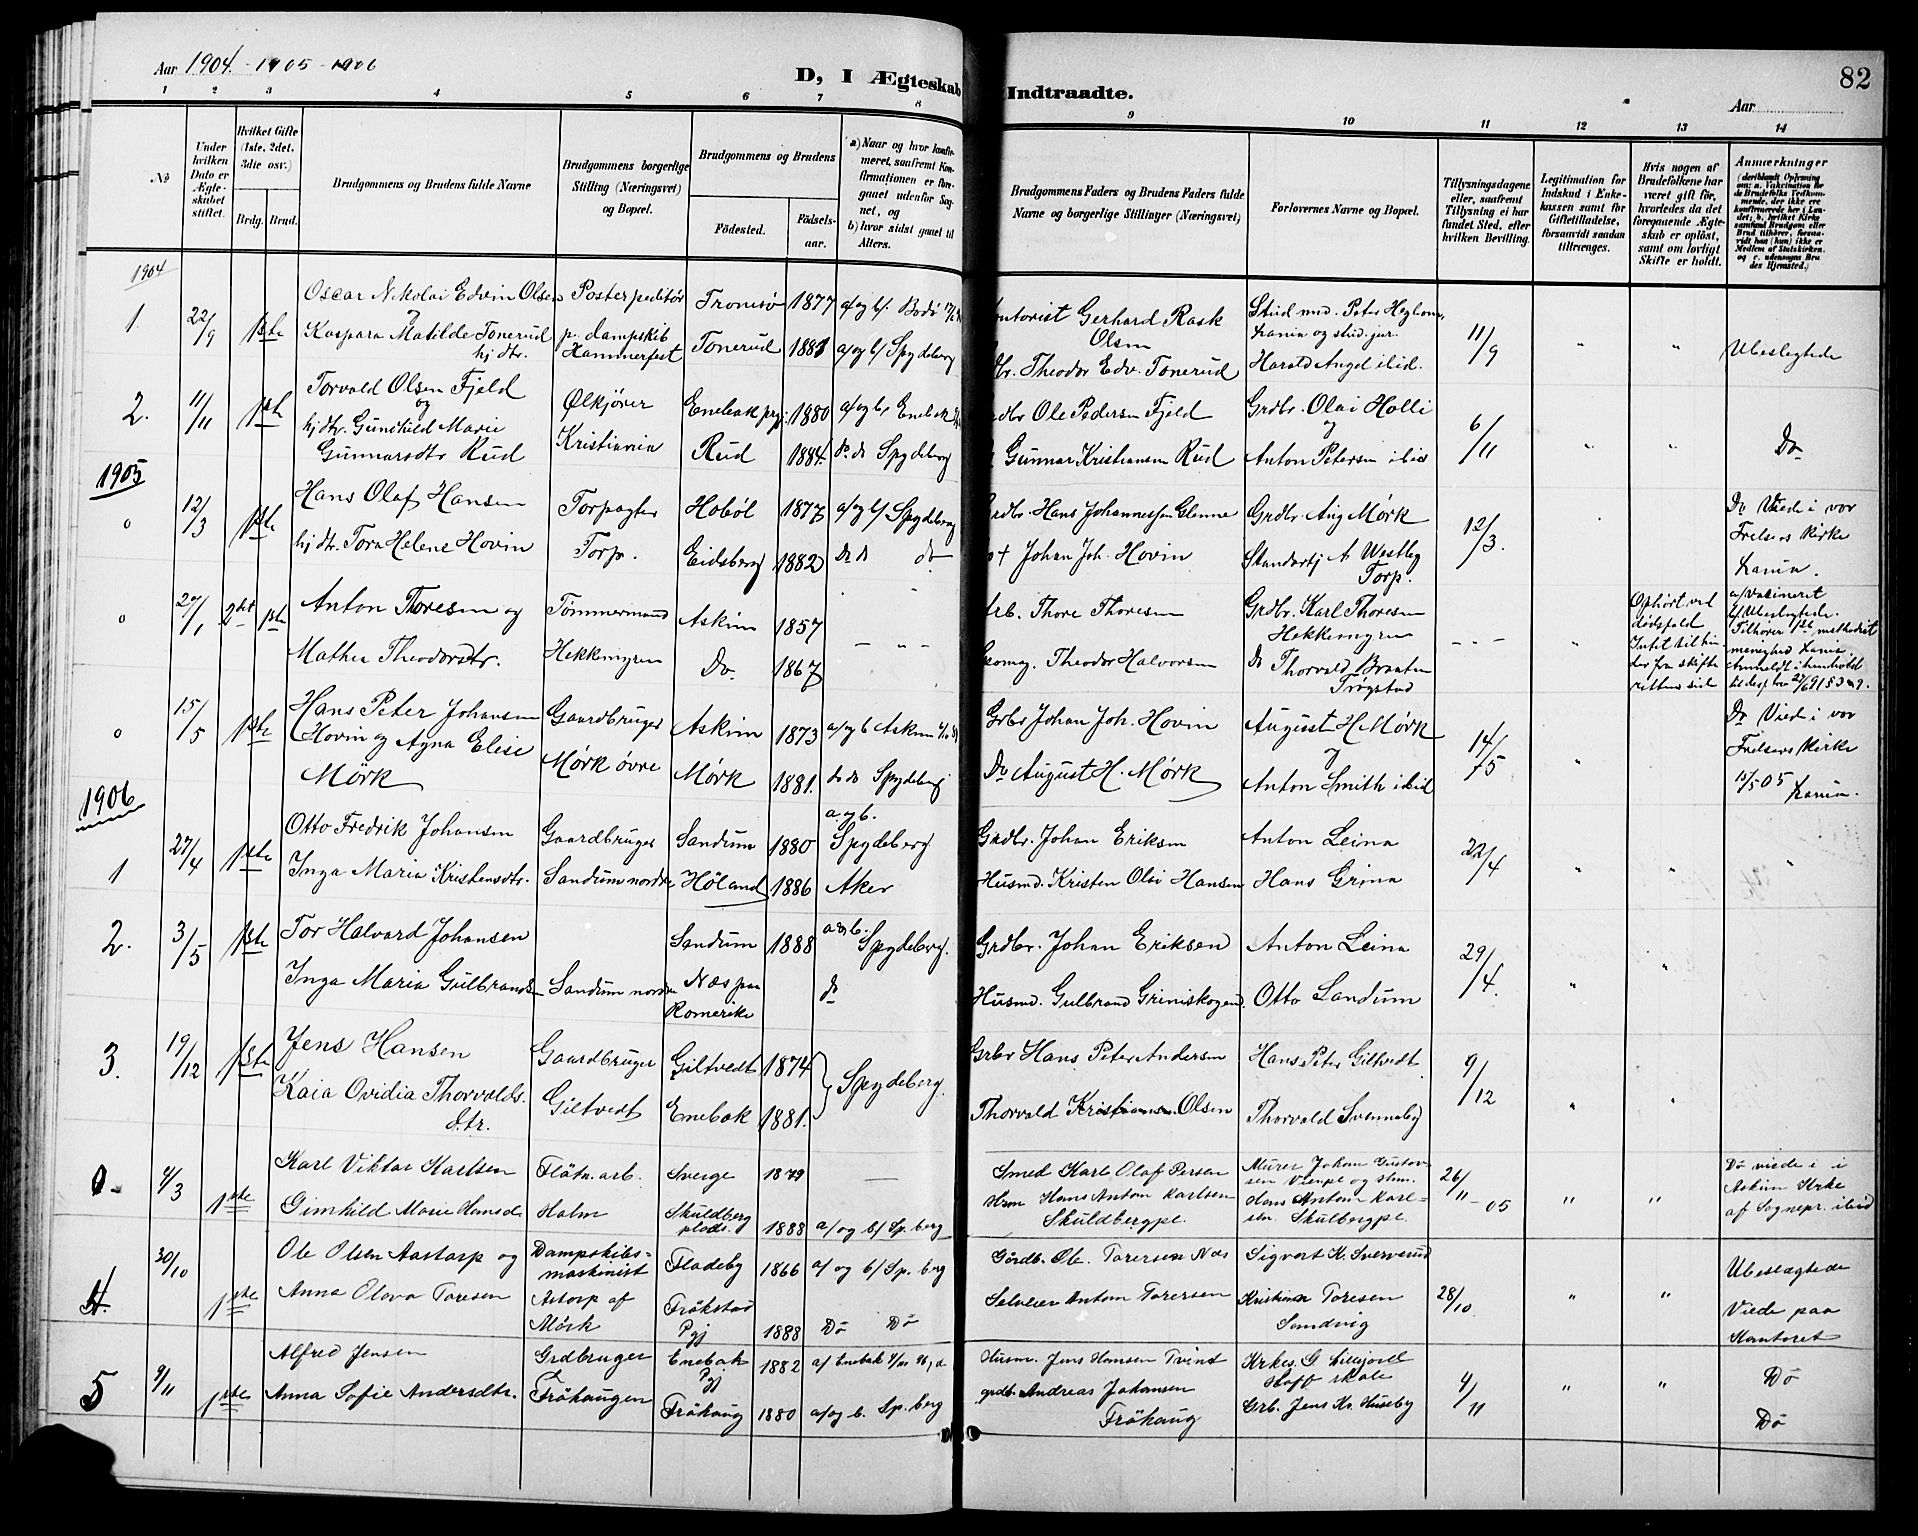 Aar 1904 - 1905 - 1906
D, I Ægteskab
Indtraadte.
82
Aar
1 2 3 4 5 6 7 8 9 10 11 12 13 14
№
Under hvilken Dato er Ægteskabet stiftet.
Hvilket Gifte (1ste, 2det, 3die osv.)
Brdg. Brud.
Brudgommens og Brudens fulde Navne
Brudgommens borgerlige Stilling (Næringsvei) og Bopæl.
Brudgommens og Brudens
Födested.
Födsels-aar.
a) Naar og hvor konfirmeret, saafremt Konfirmationen er foregaaet udenfor Sognet, og
b) hvor sidst gaaet til Alters.
Brudgommens Faders og Brudens Faders fulde Navne og borgerlige Stillinger (Næringsvei)
Forlovernes Navne og Bopæl.
Tillysningsdagene eller, saafremt Tillysning ei har fundet Sted, efter hvilken Bevilling.
Legitimation for Indskud i Enkekassen samt for Giftetilladelse, forsaavidt saadan tiltrænges.
Hvis nogen af Brudefolkene har været gift før, hvorledes da det foregaaende Ægteskab er opløst, samt om lovligt Skifte er holdt.
Anmærkninger
1904
1. 22/9 1ste Oscar Nikolai Edvin Olsen Postexpeditør Tromsø 1877 a/ og b/. Bodø
Kaspara Matilde Tonerud hj dtr. p. dampskib Hammerfest Tonerud 1881 a/og b/ Spydeberg
Gerhard Rask Olsen Stud med. Peter
Kania og stud. jur.
Theodor Edv. Tonerud Harald Angel ibid. 11/9 " " Ubeslegtede
2. 11/11 1ste Torvald Olsen Fjeld og Ølkjører Enebak prgj. 1880 a/og b/ Enebak
hj dtr. Gunhild Marie Gunnarsdtr Rud Kristiania Rud 1884. do. do Spydeberg
Ole Pedersen Fjeld Grdbr. Olai Holli og
Gunnar Kristiansen Rud Anton Petersen ibid 6/11 " " Do
1905
0 12/3 1ste Hans Olaf Hansen Forpagter Hobøl 1877 a/og b/ Spydeberg
hj dtr. Tora Helene Hovin Torp. Eidsberg 1882 do do do
Hans Johannessen Glenne Grdbr. Aug Mørk
Johan Joh. Hovin A Westby Torp. 12/3. Do Viede i vor Frelsers Kirke Kania.
0 27/1 2det 1ste Anton Thoresen og Tømmermand Askim 1857
Mathea Theodorsdtr. Hekkemyren Do 1867 - " -
Thore Thoresen Grdbr. Karl Thoresen Hekkemyren
Theodor Halvorsen Do Thorvald Braaten Trøgstad - - - "
Ophørt ved dødsfald Intet til hinder fra skifterettens side
a/ Vaccineret b/ Ubeslegtede. Tilhører 1ste methodist menighed Kania.
0 15/5 1ste Hans Peter Johansen Hovin og Agna Elise Mørk Gaardbruger Askim 1873 a/og b Askim
Mørk øvre Mørk 1881. do do Spydeberg
Grbr Johan Joh. Hovin August H. Mørk og
Do August H. Mørk Anton Smith ibid 14/5 " Do Viede i vor Frelsers Kirke 15/5 05 Kania.
1906
1 27/4 1ste Otto Fredrik Johansen Gaardbruger Sandum 1880 a. og b. Spydeberg
Inga Maria Kristensdtr. Sandum nordre Høland 1886 Aker
Grdbr. Johan Eriksen Anton Leina
Husmd. Kristen Olai Hansen Hans Grina 22/4 " " "
2. 3/5 1ste Tor Halvard Johansen Sandum 1888 a og b. Spydeberg.
Inga Maria Gulbrands Sandum nordre Næs paa Romerike do
Grdbr. Johan Eriksen Anton Leina
Husmd. Gulbrand Griniskogen. Otto Sandum 29/4. " "
3. 19/12 1ste Jens Hansen Gaardbruger Giltvedt 1874
Kaia Ovidia Thorvaldsdtr. Giltvedt Enebak 1881. } Spydeberg.
Grbr Hans Peter Andersen Hans Peter Giltvedt
Thorvald Kristiansen Olsen Thorvald Svenneby 9/12 " "
0- 4/3 1ste Karl Viktor Karlsen Fløtn. arb. Sverge 1879 -
Gunhild Marie Hansd Holm Skuldberg plads. 1888 a/og b/ Sp.berg
Smed Karl Olaf Persen Murer Johan Gustavsen
Hsm Hans Anton Karlsen Skuldbergpl. Hans Anton Karlsen. Skulbergpl. 26/11 - 05 " " Do viede i i Askim Kirke af Sognepr. ibid
4. 30/10 1ste Ole Olsen Aastorp og Dampskibsmaskinist Fladeby 1866 a/ og b/ Sp. berg
Anna Olava Toresen Astorp af Mørk Frökstad Pgj 1888 Do Do
Gårdb. Ole Toresen Næs Sigvert K. Sververud
Selveier Anton Toresen Kristian Toresen Sandvig 28/10. " " Ubeslægtede Viede paa Kontoret
5 9/11 1ste Alfred Jensen Grdbruger Enebak Pgj 1882 a/ Enebak
Anna Sofie Andersdtr. Fröhaugen Fröhaug 1880 a/og b. Sp.berg
Husm. Jens Hansen Tvind Krkes. G. Lillejord Hoff skole
grdb. Andreas Johansen Fröhaug Grb. Jens Kr. Huseby 4/11 " " Do
Do